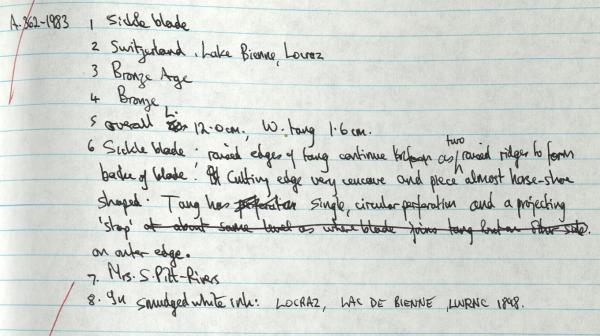 A.362-1983 1 Sickle blade
2 Switzerland, Lake Bienne, Locraz
3 Bronze Age
4 Bronze
5 overall L. 12.0cm, W. tang 1.6cm.
6 Sickle blade: raised edges of tang continue as two raised ridges to form
back of blade; Cutting edge very concave and piece almost horse-shoe
shaped. Tang has perforation single, circular perforation and a projecting
'stop' at about same level as where blade joins tang but on
on outer edge.
7. Mrs. S. Pitt-Rivers
8. In smudged white ink: LOCRAZ, LAC DE BIENNE, 1898.